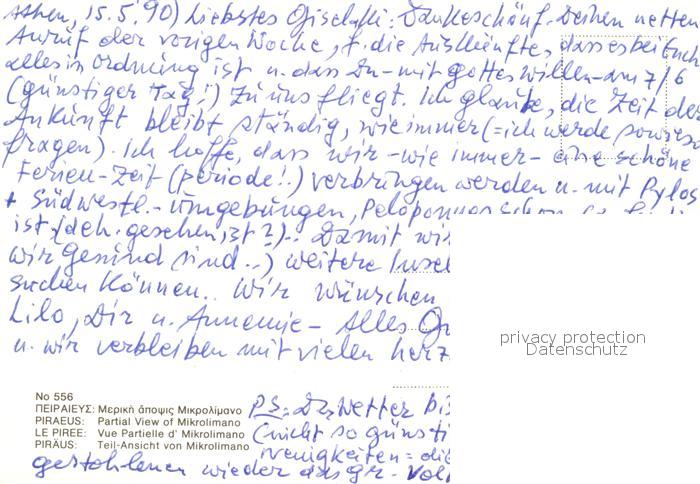 Athen, 15.5.'90) Liebstes Gischilli: Dankeschönf. Deinen netten
Anruf der vorigen Woche, f. die Auskünfte, dass es bei Euch
alles in Ordnung ist u. dass Du - mit Gottes willen - am 7/6
(günstiger Tag!) zu uns fliegt. Ich glaube, die Zeit der
Ankunft bleibt ständig, wie immer (= ich werde sowieso
fragen). Ich hoffe, dass wir - wie immer - eine schöne
Ferien-Zeit (periode!) verbringen werden u. mit Pylos
+ Südwestl.-Umgebungen,
ist (deh. gesehen, ist?).. Damit wir
wir gesund sind..) weitere Insel
suchen können.. Wir wünschen
Lilo, Dir u. Annemie - Alles
u. wir verbleiben mit vielen herz
privacy protection
Datenschutz
No 556
ΠΕΙΡΑΙΕΥΣ: Μερική ἄποψις Μικρολίμανο
PIRAEUS: Partial View of Mikrolimano
LE PIREE: Vue Partielle d' Mikrolimano
PIRÄUS: Teil-Ansicht von Mikrolimano
PS: Das Wetter bis
(nicht so günsti
neuigkeiten = die
gestohlenen wieder das gr. Vol